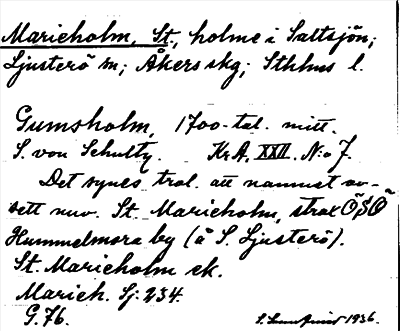 Marieholm, St., holme i Saltsjön;
Ljusterö sn; Åkers skg; Sthlms l.
Gumsholm, 1700-tal. mitt.
S. von Schultz. KrA, XXII. N:o 7.
Det synes trol. att namnet av-
sett nuv. St. Marieholm, strax ÖSÖ
Hummelmora by (å S. Ljusterö).
St. Marieholm ek.
Marieh. Sj. 234.
G. 76. 1936.